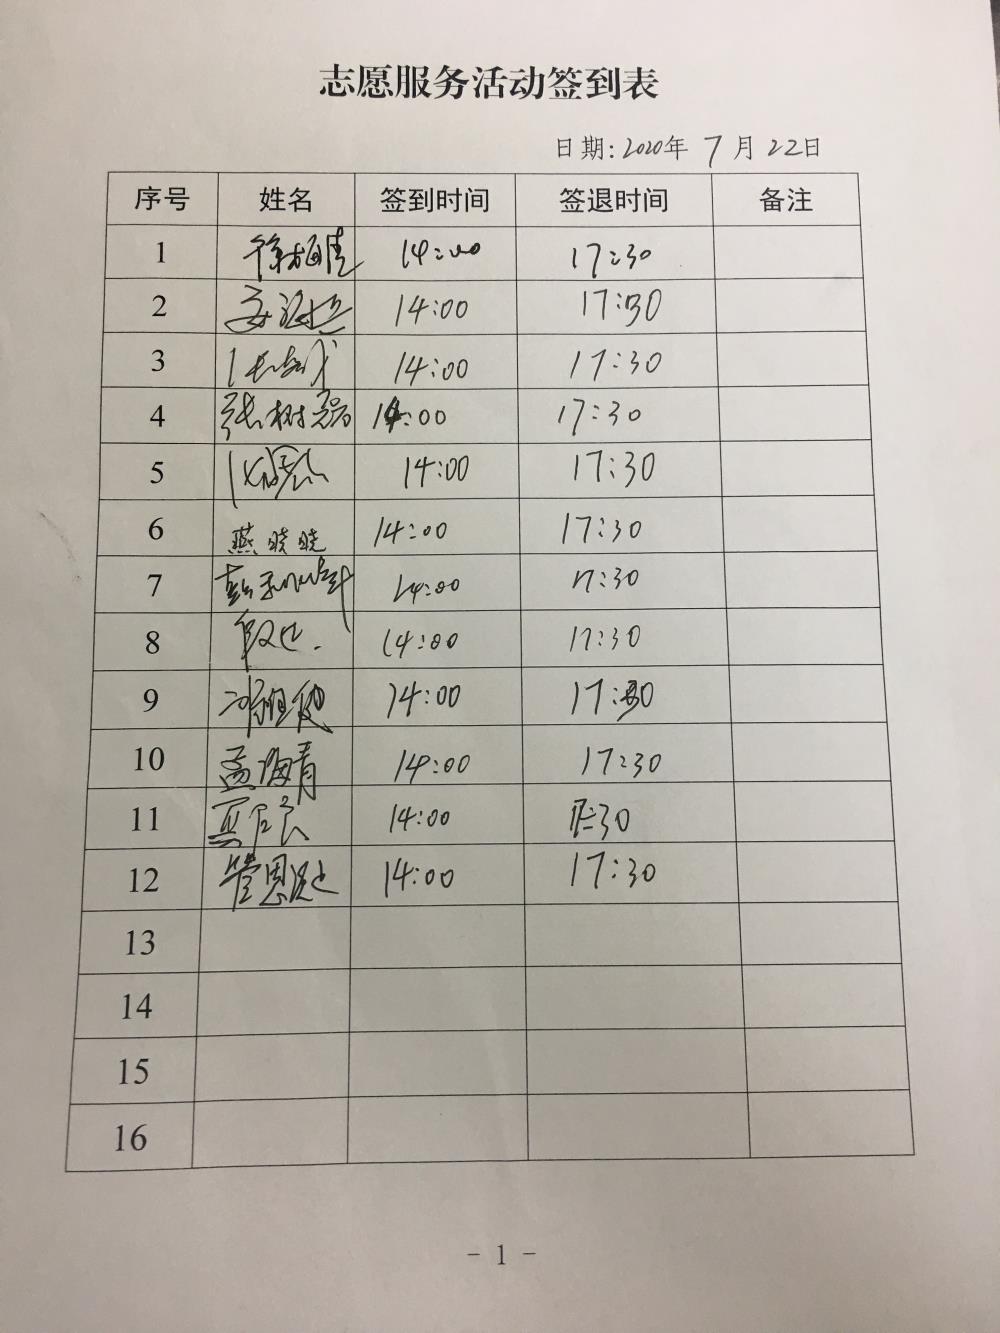 志愿服务活动签到表
日期:2020年 7月22日
序号 姓名 签到时间 签退时间 备注
1 14:00 17:30
2 14:00 17:30
3 14:00 17:30
4 张树磊 14:00 17:30
5 14:00 17:30
6 燕晓晓 14:00 17:30
7 14:00 17:30
8 14:00 17:30
9 14:00 17:30
10 孟海青 14:00 17:30
11 14:00 17:30
12 14:00 17:30
13
14
15
16
- 1 -